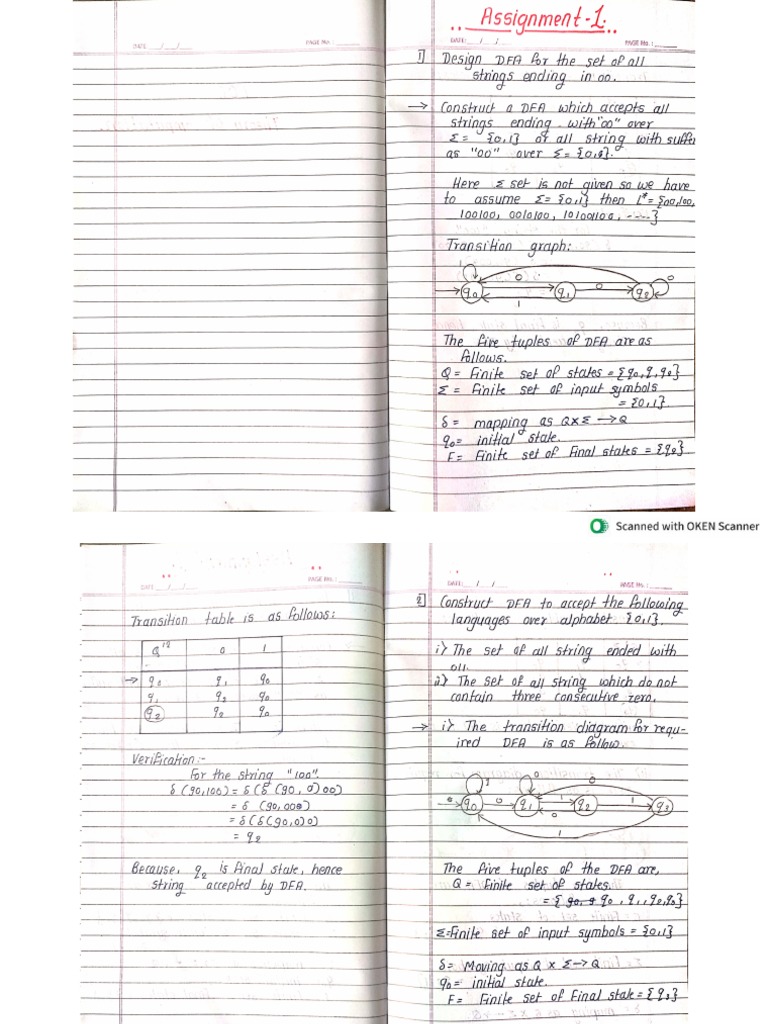 Assignment-1.
DATE: __/__/__
PAGE No.: ______
DATE: __/__/__
PAGE No.: ______
1] Design DFA for the set of all
strings ending in 00.
→ Construct a DFA which accepts all
strings ending with "00" over
Σ = {0,1} of all string with suffix
as "00" over Σ = {0,1}.
Here Σ set is not given so we have
to assume Σ = {0,1} then L* = {00,100,
100100, 0010100, 10100100, ----}
Transition graph:
1 0 0
q0 q1 0 q2
1
The five tuples of DFA are as
follows.
Q = Finite set of states = {q0,q,q0}
Σ = Finite set of input symbols
= {0,1}
δ = mapping as Q×Σ → Q
q0 = initial state.
F = Finite set of Final states = {q0}
Scanned with OKEN Scanner
DATE: __/__/__
PAGE No.: ______
Transition table is as follows:
Q 0 1
→ q0 q1 q0
q1 q2 q0
q2 q2 q0
Verification:-
For the string "100".
δ (q0,100) = δ(δ (q0,
= δ (q0,00
= δ(δ(q0,0)0)
= q2
Because, q2 is final state, hence
string accepted by DFA.
DATE: __/__/__
PAGE No.: ______
2] Construct DFA to accept the following
languages over alphabet {0,1}.
i) The set of all string ended with
011.
ii) The set of all string which do not
contain three consecutive zero.
→ i) The transition diagram for requ-
ired DFA is as follow.
1 0 0
q0 0 q1 1 q2 1 q3
0
1
The five tuples of the DFA are,
Q = finite set of states.
= { q0, q1, q2, q3}
Σ = Finite set of input symbols = {0,1}
δ = Moving as Q × Σ → Q
q0 = initial state.
F = Finite set of Final state = {q3}